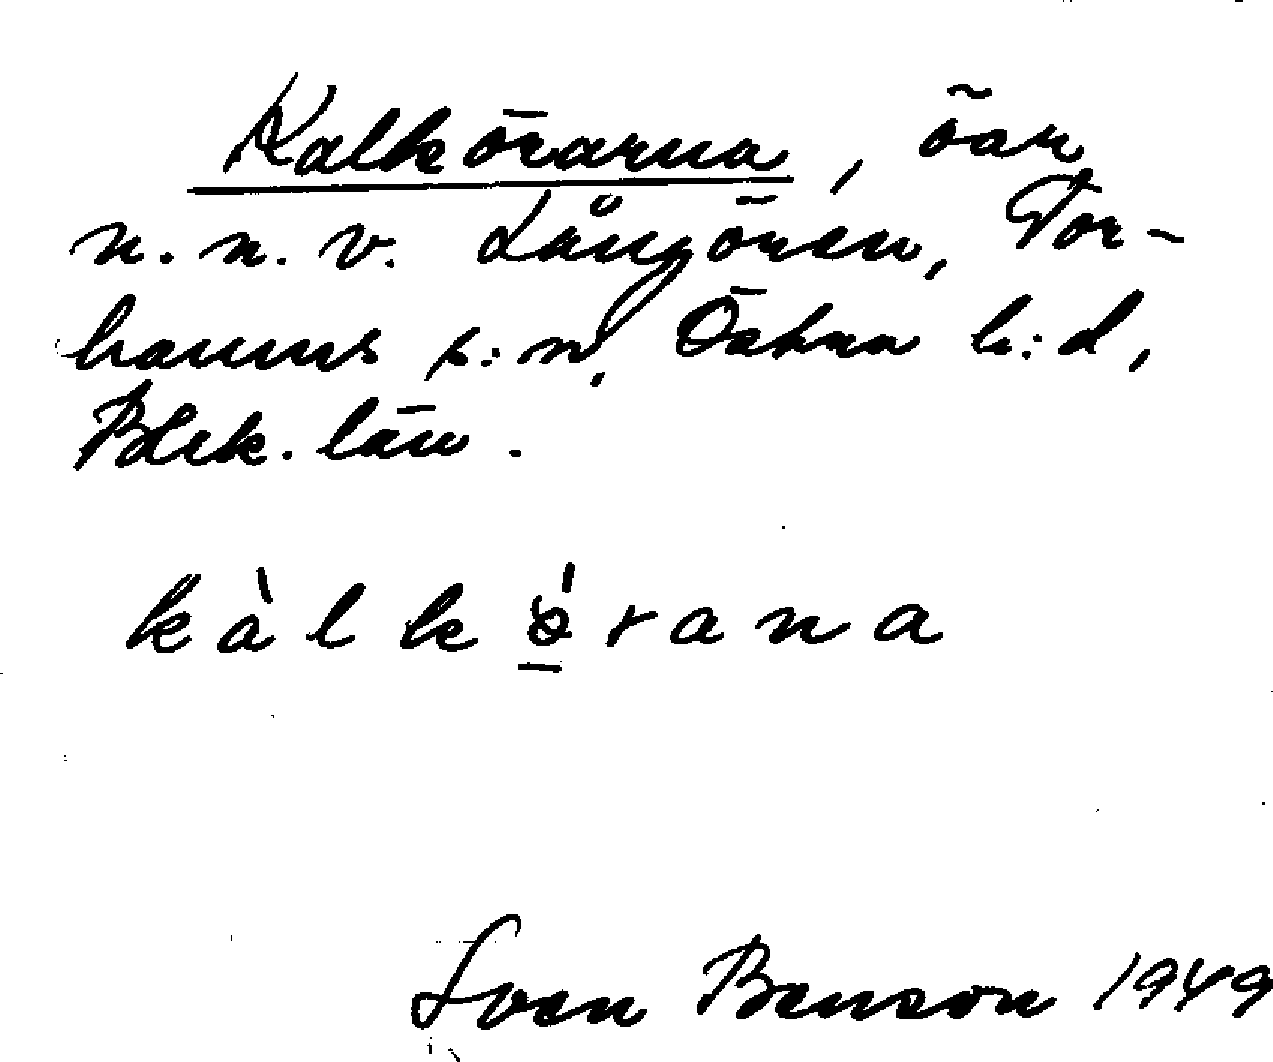 Kalkörarna, öar
n.n.v. Långören, Tor-
hamns s:n, Östra h:d,
Blek. län.
kàlkǿ̱rana
Sven Benson 1949